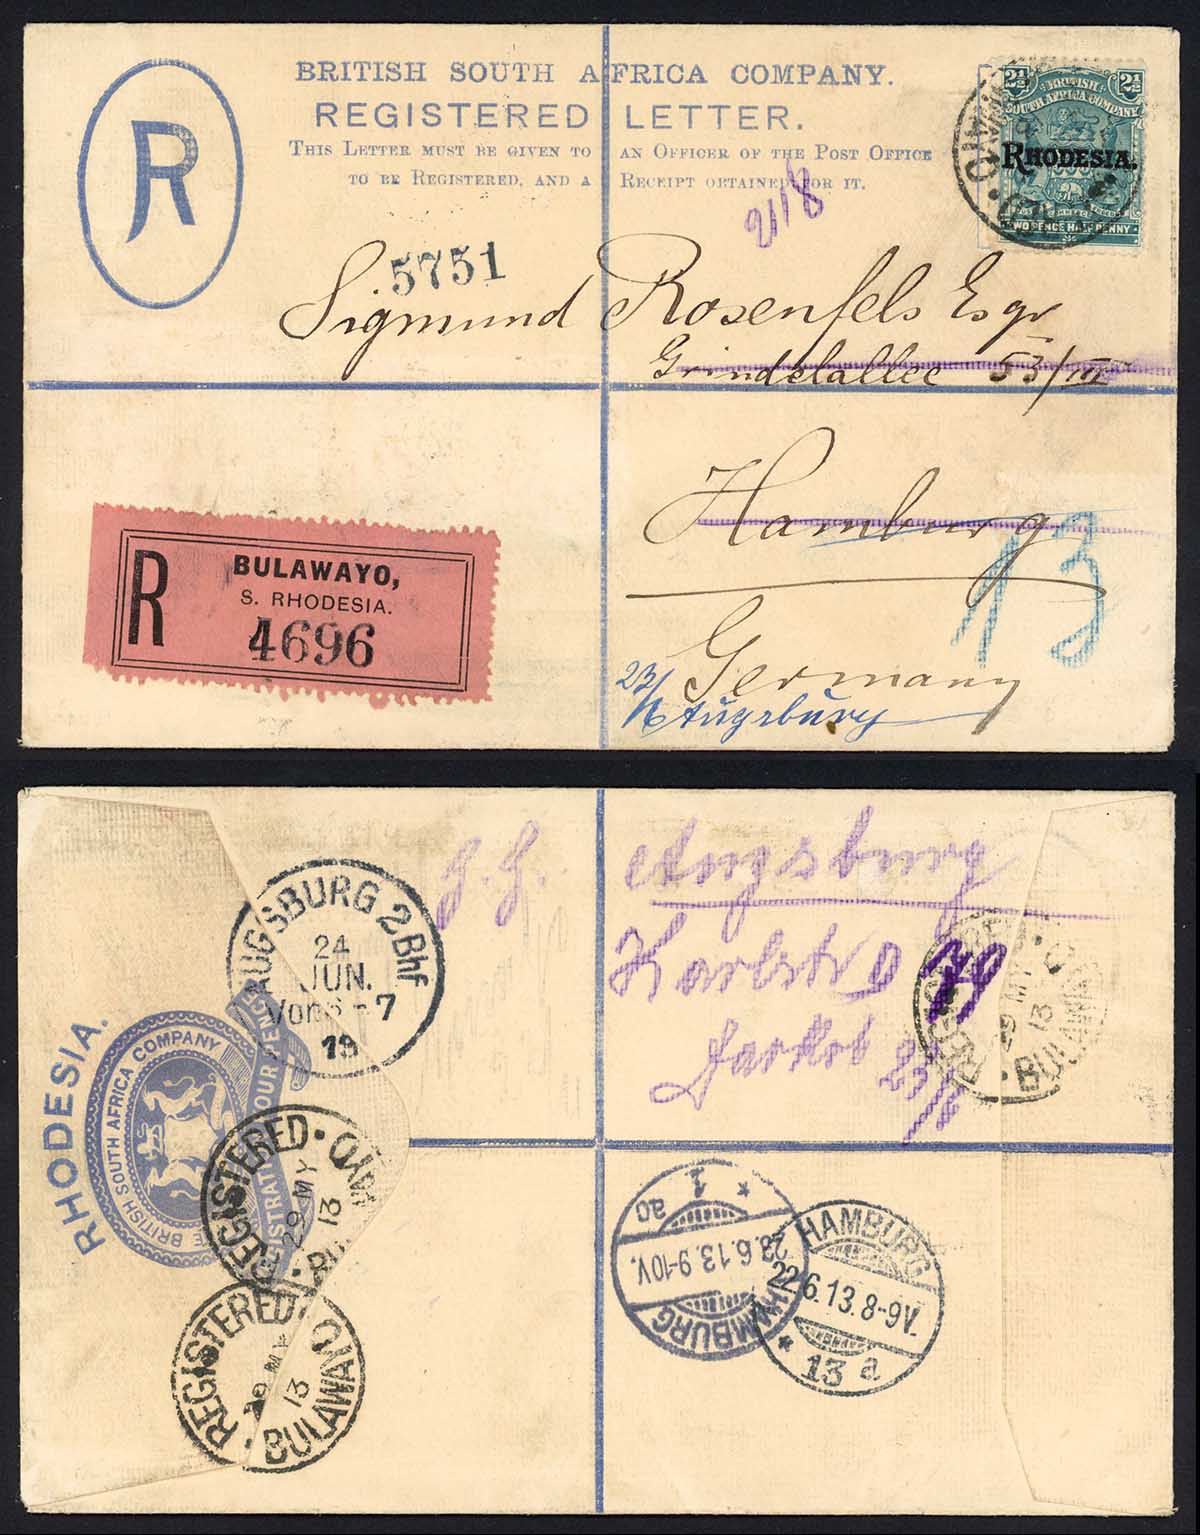 BRITISH SOUTH AFRICA COMPANY.
REGISTERED LETTER.
THIS LETTER MUST BE GIVEN TO AN OFFICER OF THE POST OFFICE
TO BE REGISTERED, AND A RECEIPT OBTAINED FOR IT.
R
2½ 2½
BRITISH
SOUTH AFRICA COMPANY
RHODESIA.
TWO PENCE HALFPENNY
BULAWAYO
5751
Sigmund Rosenfels Esqr
Grindelallee 53/III
Hamburg
13
Germany
23/6 Augsburg
R
BULAWAYO,
S. RHODESIA.
4696
AUGSBURG 2 Bhf
24
JUN.
Vorm 6-7
13
Augsburg
Karlstr D
70
REGISTERED · BULAWAYO ·
29 MY
13
RHODESIA.
THE BRITISH SOUTH AFRICA COMPANY
REGISTRATION FOUR PENCE
REGISTERED · BULAWAYO ·
29 MY
13
REGISTERED · BULAWAYO ·
29 MY
13
HAMBURG
23.6.13.9-10V.
* 1 ao *
HAMBURG
22.6.13.8-9V.
* 13 a